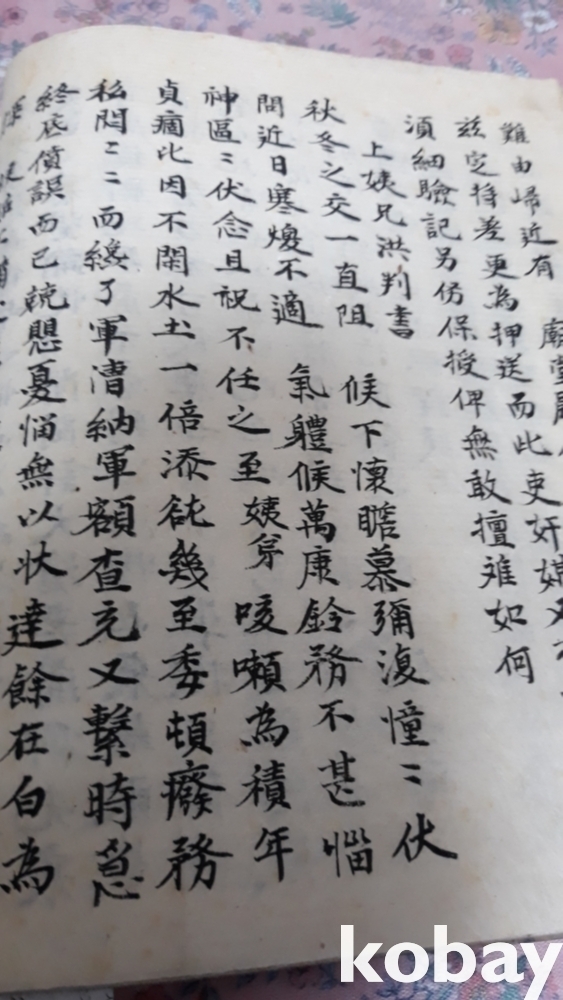 難由歸近有 廟堂
玆定持差更為押送而此吏奸
湏細驗記另仿保授俾無敢擅離如何
上姨兄洪判書
秋冬之交一直阻 候下懷瞻慕彌復憧〻伏
問近日寒煖不適 氣體候萬康鈴務不甚惱
神區〻伏念且祝不任之至姨弟咳嗽為積年
貞痼比因不閑水土一倍添 幾至委頓癈務
私悶〻〻而纔了軍漕納軍額查充又繫時急
終底僨誤而已兢懇憂惱無以狀達餘在白為
kobay